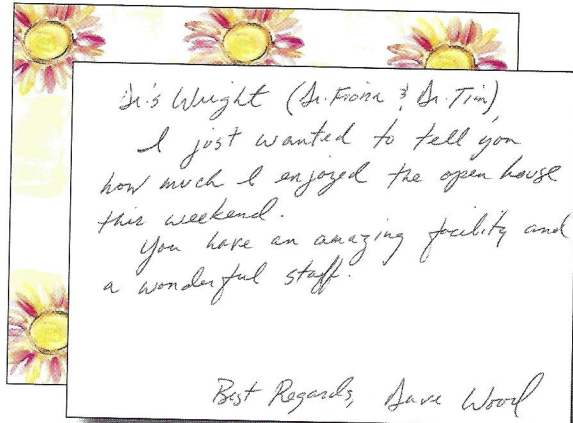 Dr's Wright (Dr. Fiona & Dr. Tim),
I just wanted to tell you
how much I enjoyed the open house
this weekend.
You have an amazing facility and
a wonderful staff.
Best Regards, Dave Wood